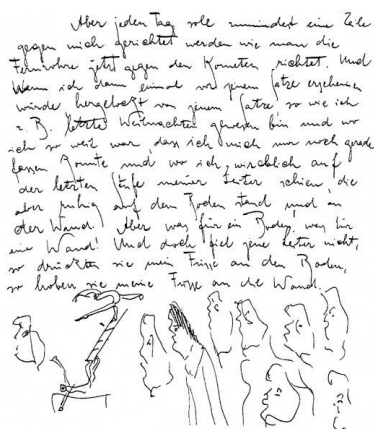 Aber jeden Tag soll mindest eine Zeile
gegen mich gerichtet werden wie man die
Fernrohre jetzt gegen den Kometen richtet. Und
Wenn ich dann einmal vor jenem Satze erscheinen
würde hergelockt von jenem Satze so wie ich
z. B. letzte Weihnachten gewesen bin und wo
ich so weit war, dass ich mich nur noch gerade
fassen konnte und wo ich wirklich auf
der letzten Stufe meiner Leiter schien, die
aber ruhig auf dem Boden stand und an
der Wand. Aber was für ein Boden, was für
eine Wand! Und doch fiel jene Leiter nicht,
so drückten sie mein Füsse an den Boden,
so hoben sie meine Füsse an die Wand.